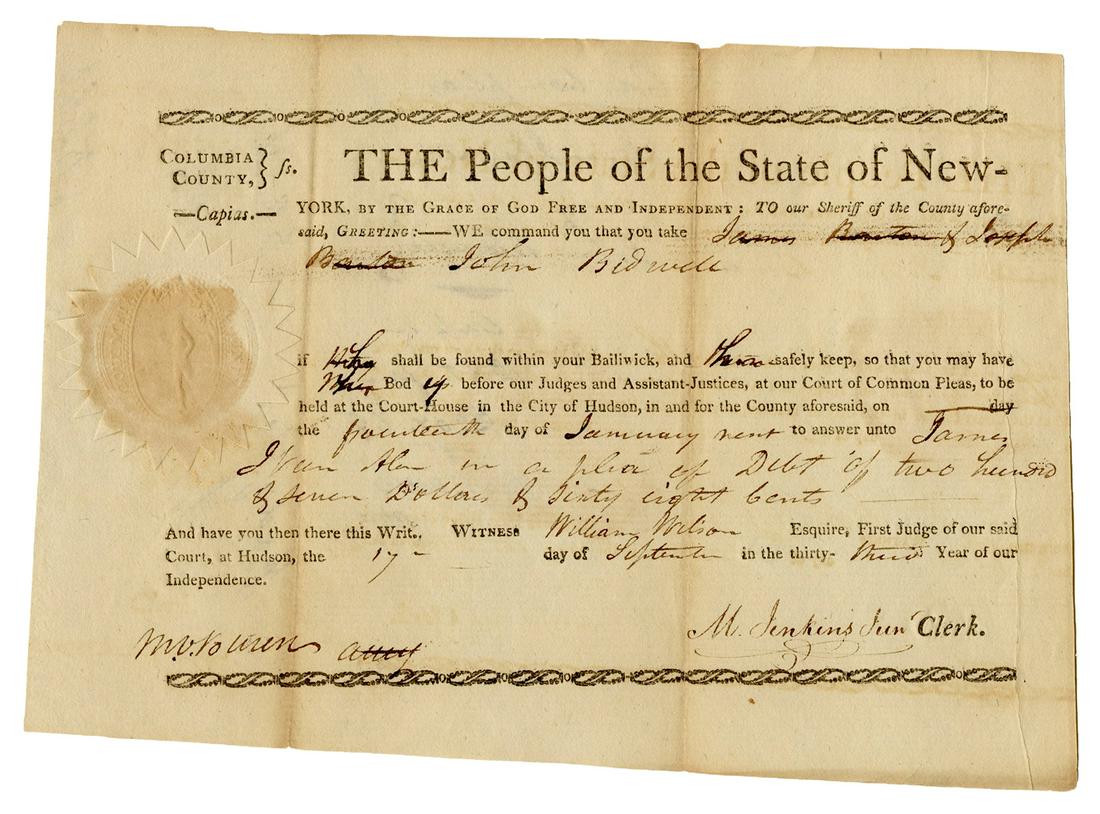 COLUMBIA COUNTY, } ss.
THE People of the State of New-
—Capias.—
YORK, BY THE GRACE OF GOD FREE AND INDEPENDENT: TO our Sheriff of the County afore-
said, GREETING:——WE command you that you take James Bouton & Joseph
Bouton John Bidwell
If he shall be found within your Bailiwick, and safely keep, so that you may have
Bod y before our Judges and Assistant-Justices, at our Court of Common Pleas, to be
held at the Court-House in the City of Hudson, in and for the County aforesaid, on day
the fourteenth day of January next to answer unto James
I Van Alen in a plea of Debt of two hundred
& seven Dollars & sixty eight Cents
And have you then there this Writ. WITNESS William Wilson Esquire, First Judge of our said
Court, at Hudson, the 17 day of September in the thirty- third Year of our
Independence.
M. Jenkins Junr Clerk.
M. V. Buren atty